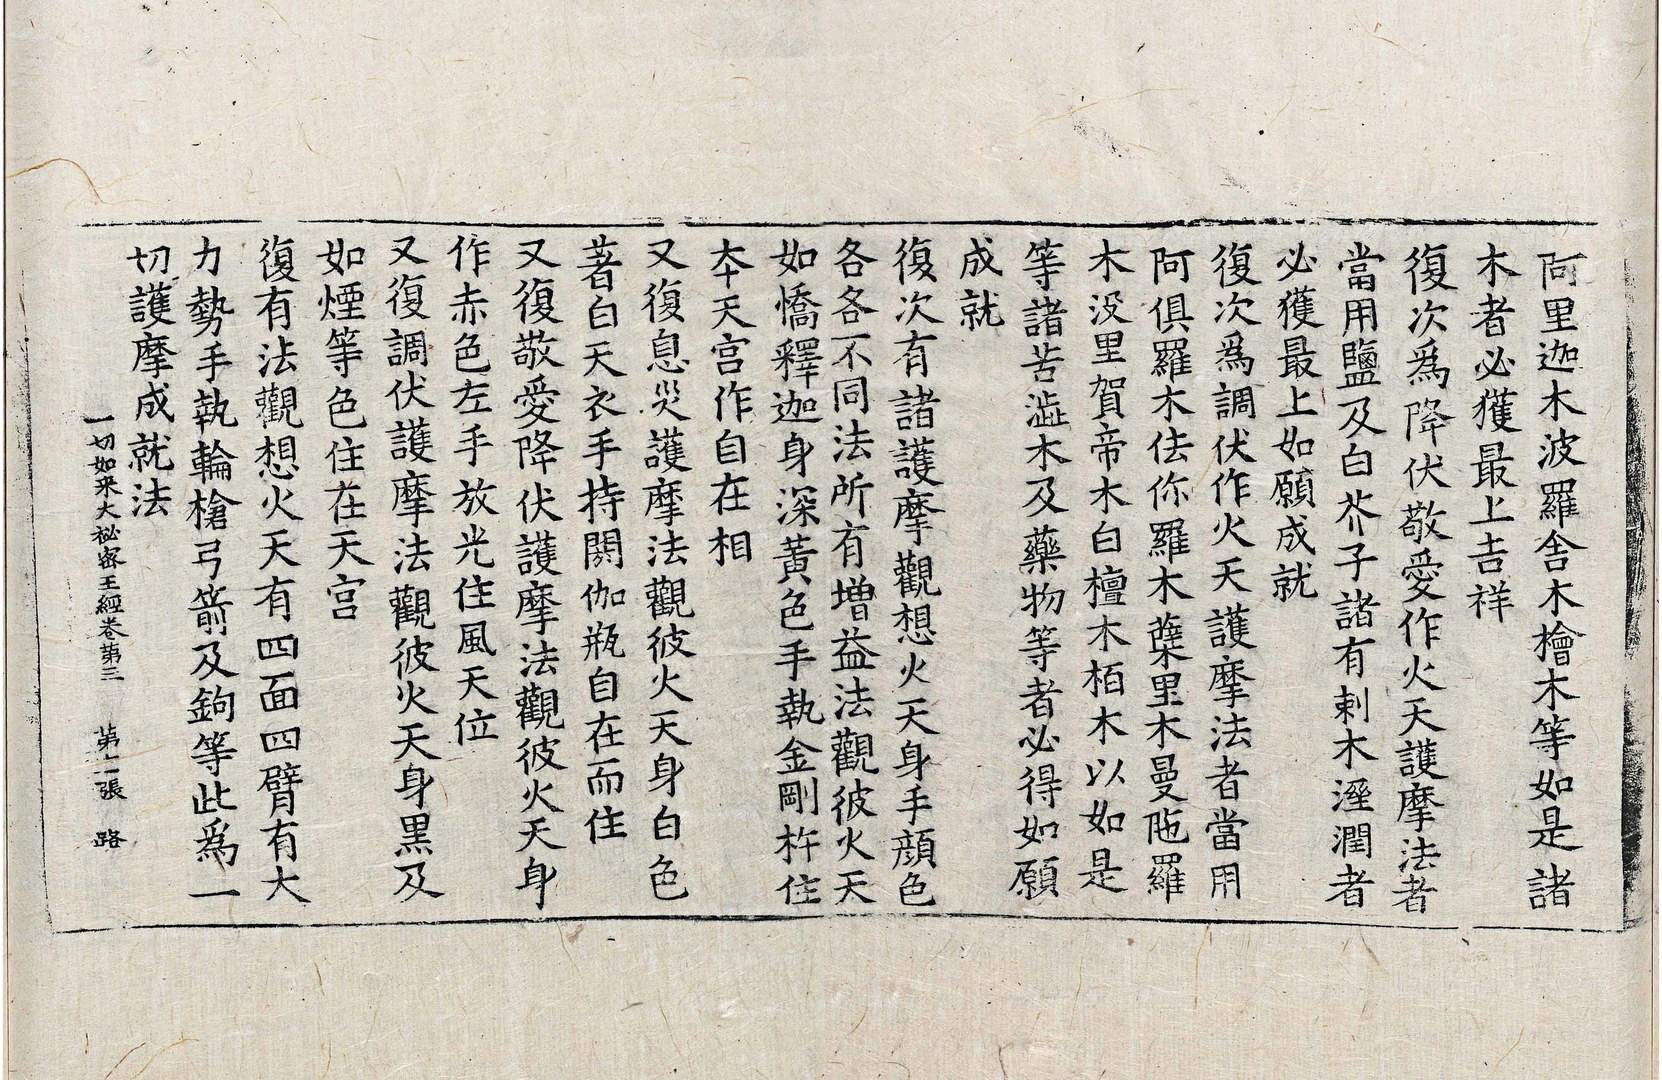 阿里迦木波羅舍木檜木等如是諸
木者必獲最上吉祥
復次爲降伏敬愛作火天護摩法者
當用鹽及白芥子諸有刺木溼潤者
必獲最上如願成就
復次爲調伏作火天護摩法者當用
阿俱羅木佉你羅木蘗里木曼陁羅
木没里賀帝木白檀木栢木以如是
等諸苦澁木及藥物等者必得如願
成就
復次有諸護摩觀想火天身手顔色
各各不同法所有增益法觀彼火天
如憍釋迦身深黃色手執金剛杵住
夲天宫作自在相
又復息災護摩法觀彼火天身白色
著白天衣手持閼伽瓶自在而住
又復敬愛降伏護摩法觀彼火天身
作赤色左手放光住風天位
又復調伏護摩法觀彼火天身黒及
如煙等色住在天宫
復有法觀想火天有四面四臂有大
力勢手執輪槍弓箭及鉤等此爲一
切護摩成就法
一切如来大祕密王經卷第三 第二張 路